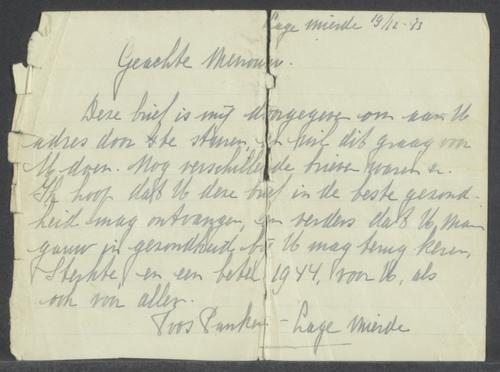 Lage Mierde 19/12-43
Geachte Mevrouw.
Deze brief is mij doorgegeven om aan U
adres door te sturen, en wil dit graag voor
U doen. Nog verschillende brieven waren er.
Ik hoop dat U deze brief in de beste gezond-
heid mag ontvangen, en verders dat U, Man
gauw in gezondheid bij U mag terug keren,
Sterkte, en een beter 1944, voor U, als
ook voor allen.
Toos - Lage Mierde